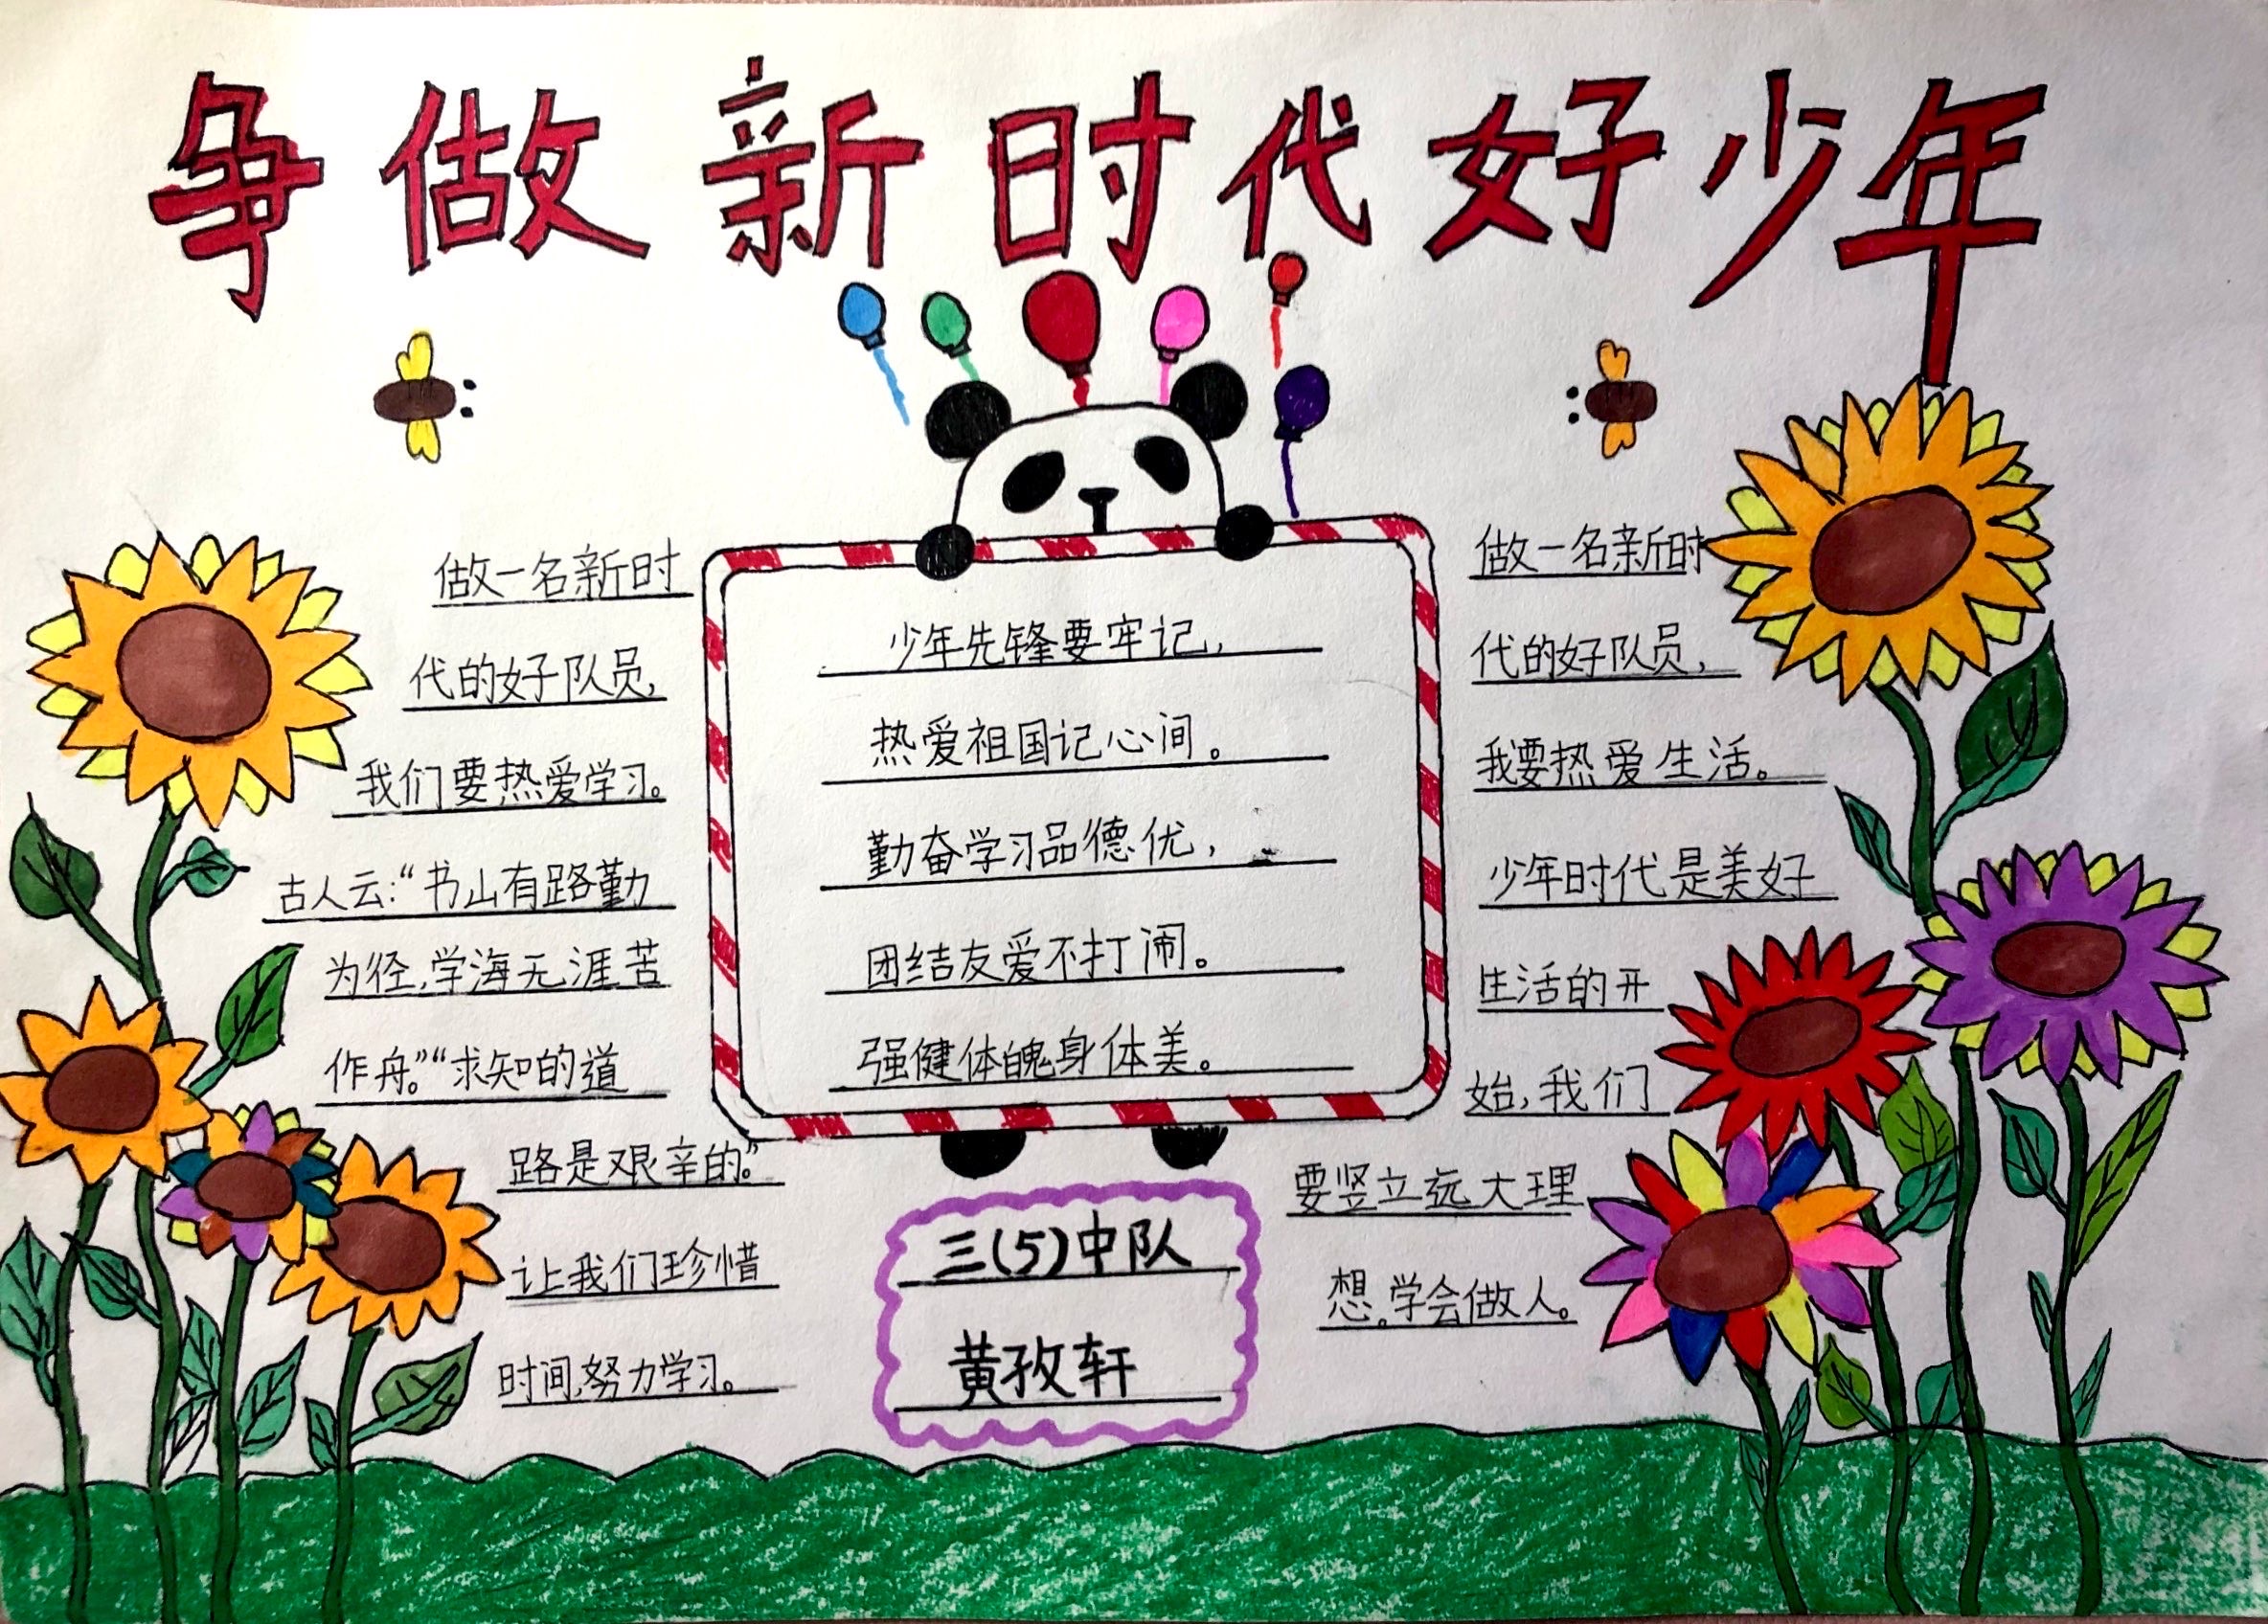 争做新时代好少年
做一名新时
代的好队员,
我们要热爱学习。
古人云:“书山有路勤
为径,学海无涯苦
作舟。”“求知的道
路是艰辛的。”
让我们珍惜
时间,努力学习。
少年先锋要牢记,
热爱祖国记心间。
勤奋学习品德优,
团结友爱不打闹。
强健体魄身体美。
三(5)中队
黄孜轩
做一名新时
代的好队员,
我要热爱生活。
少年时代是美好
生活的开
始,我们
要竖立远大理
想。学会做人。